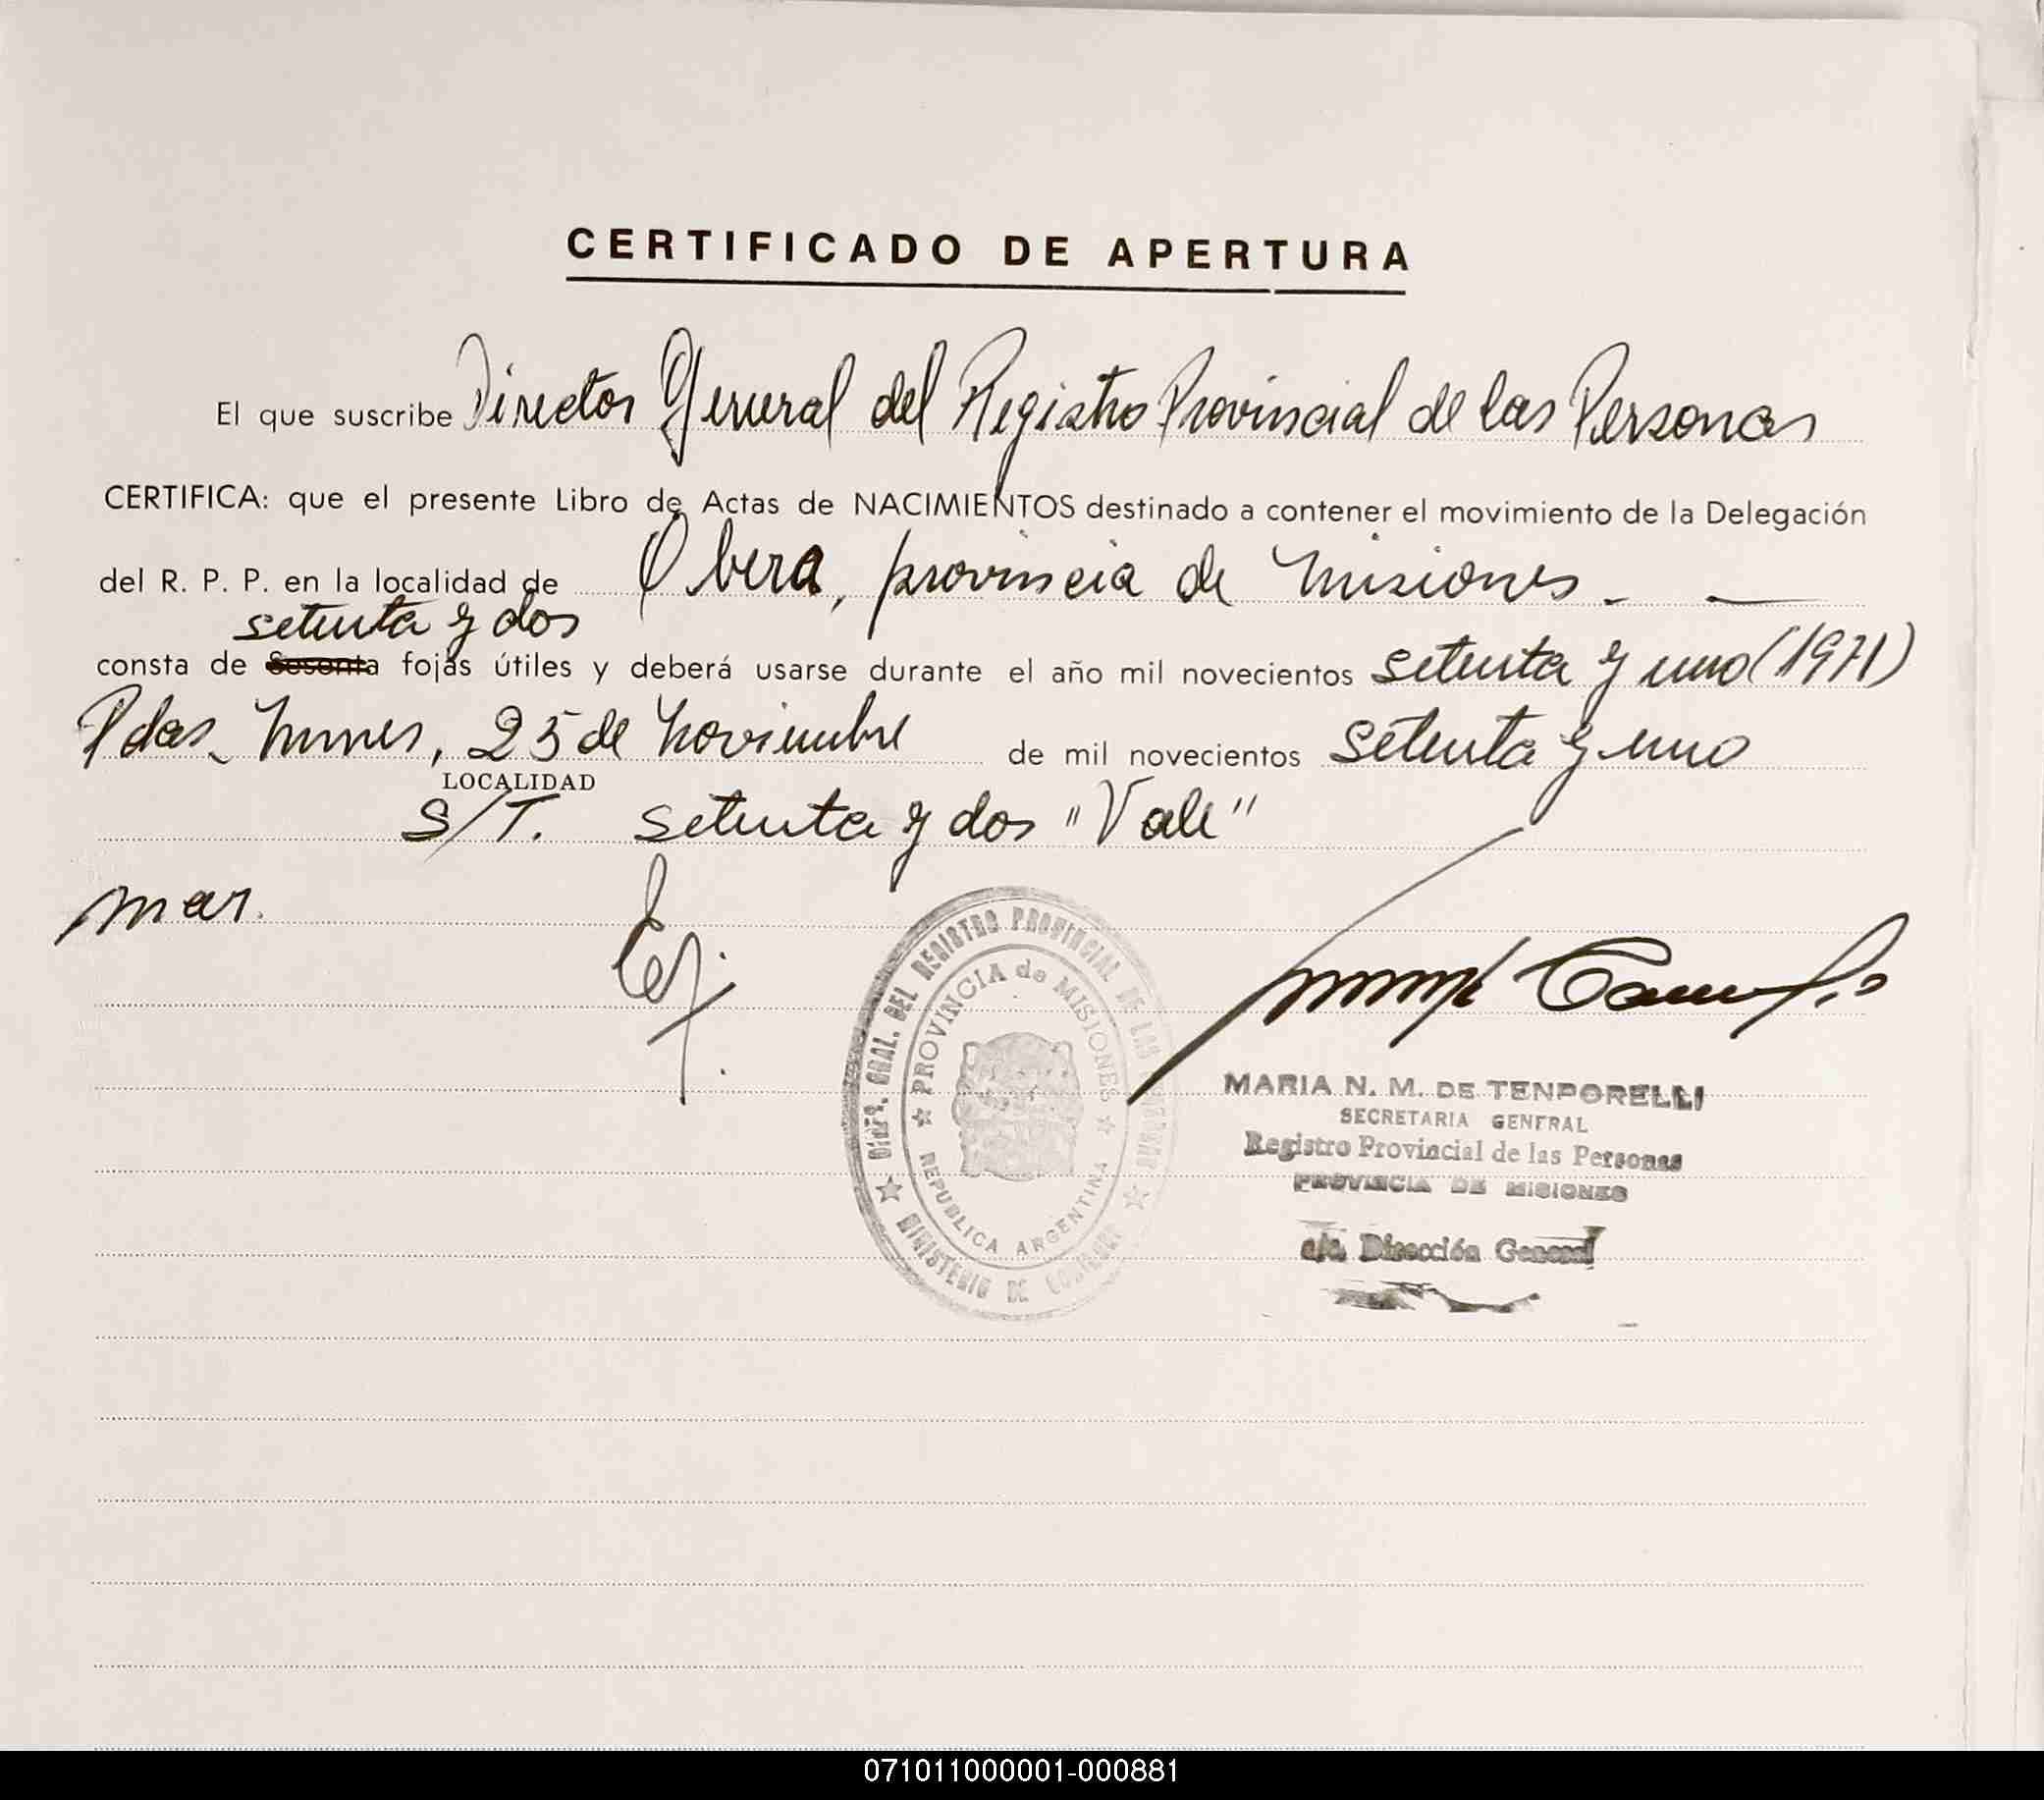 CERTIFICADO DE APERTURA
El que suscribe Director General del Registro Provincial de las Personas
CERTIFICA: que el presente Libro de Actas de NACIMIENTOS destinado a contener el movimiento de la Delegación
del R. P. P. en la localidad de Obera, provincia de Misiones. —
setenta y dos
consta de Sesenta fojas útiles y deberá usarse durante el año mil novecientos setenta y uno (1971)
Pdas. Mnes, 25 de Noviembre de mil novecientos setenta y uno
LOCALIDAD
S/T. setenta y dos "Vale"
mar.
DIREC. GRAL. DEL REGISTRO PROVINCIAL DE LAS PERSONAS
PROVINCIA de MISIONES
REPUBLICA ARGENTINA
MINISTERIO DE GOBIERNO
MARIA N. M. DE TENPORELLI
SECRETARIA GENERAL
Registro Provincial de las Personas
PROVINCIA DE MISIONES
a/c. Dirección General
071011000001-000881